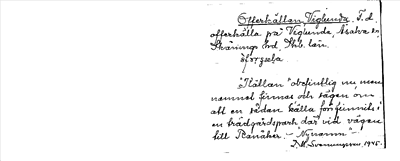 Offerkällan, Viglunda. F. d.
offerkälla på Viglunda, Åsaka sn
Skånings hd, Skb. län.
"Källan" obefintlig nu, men
namnet finnes och sägen om
att en sådan källa förr funnits i
en trädgårdspark där vid vägen
till Stenåker. – Nynamn –
1945.